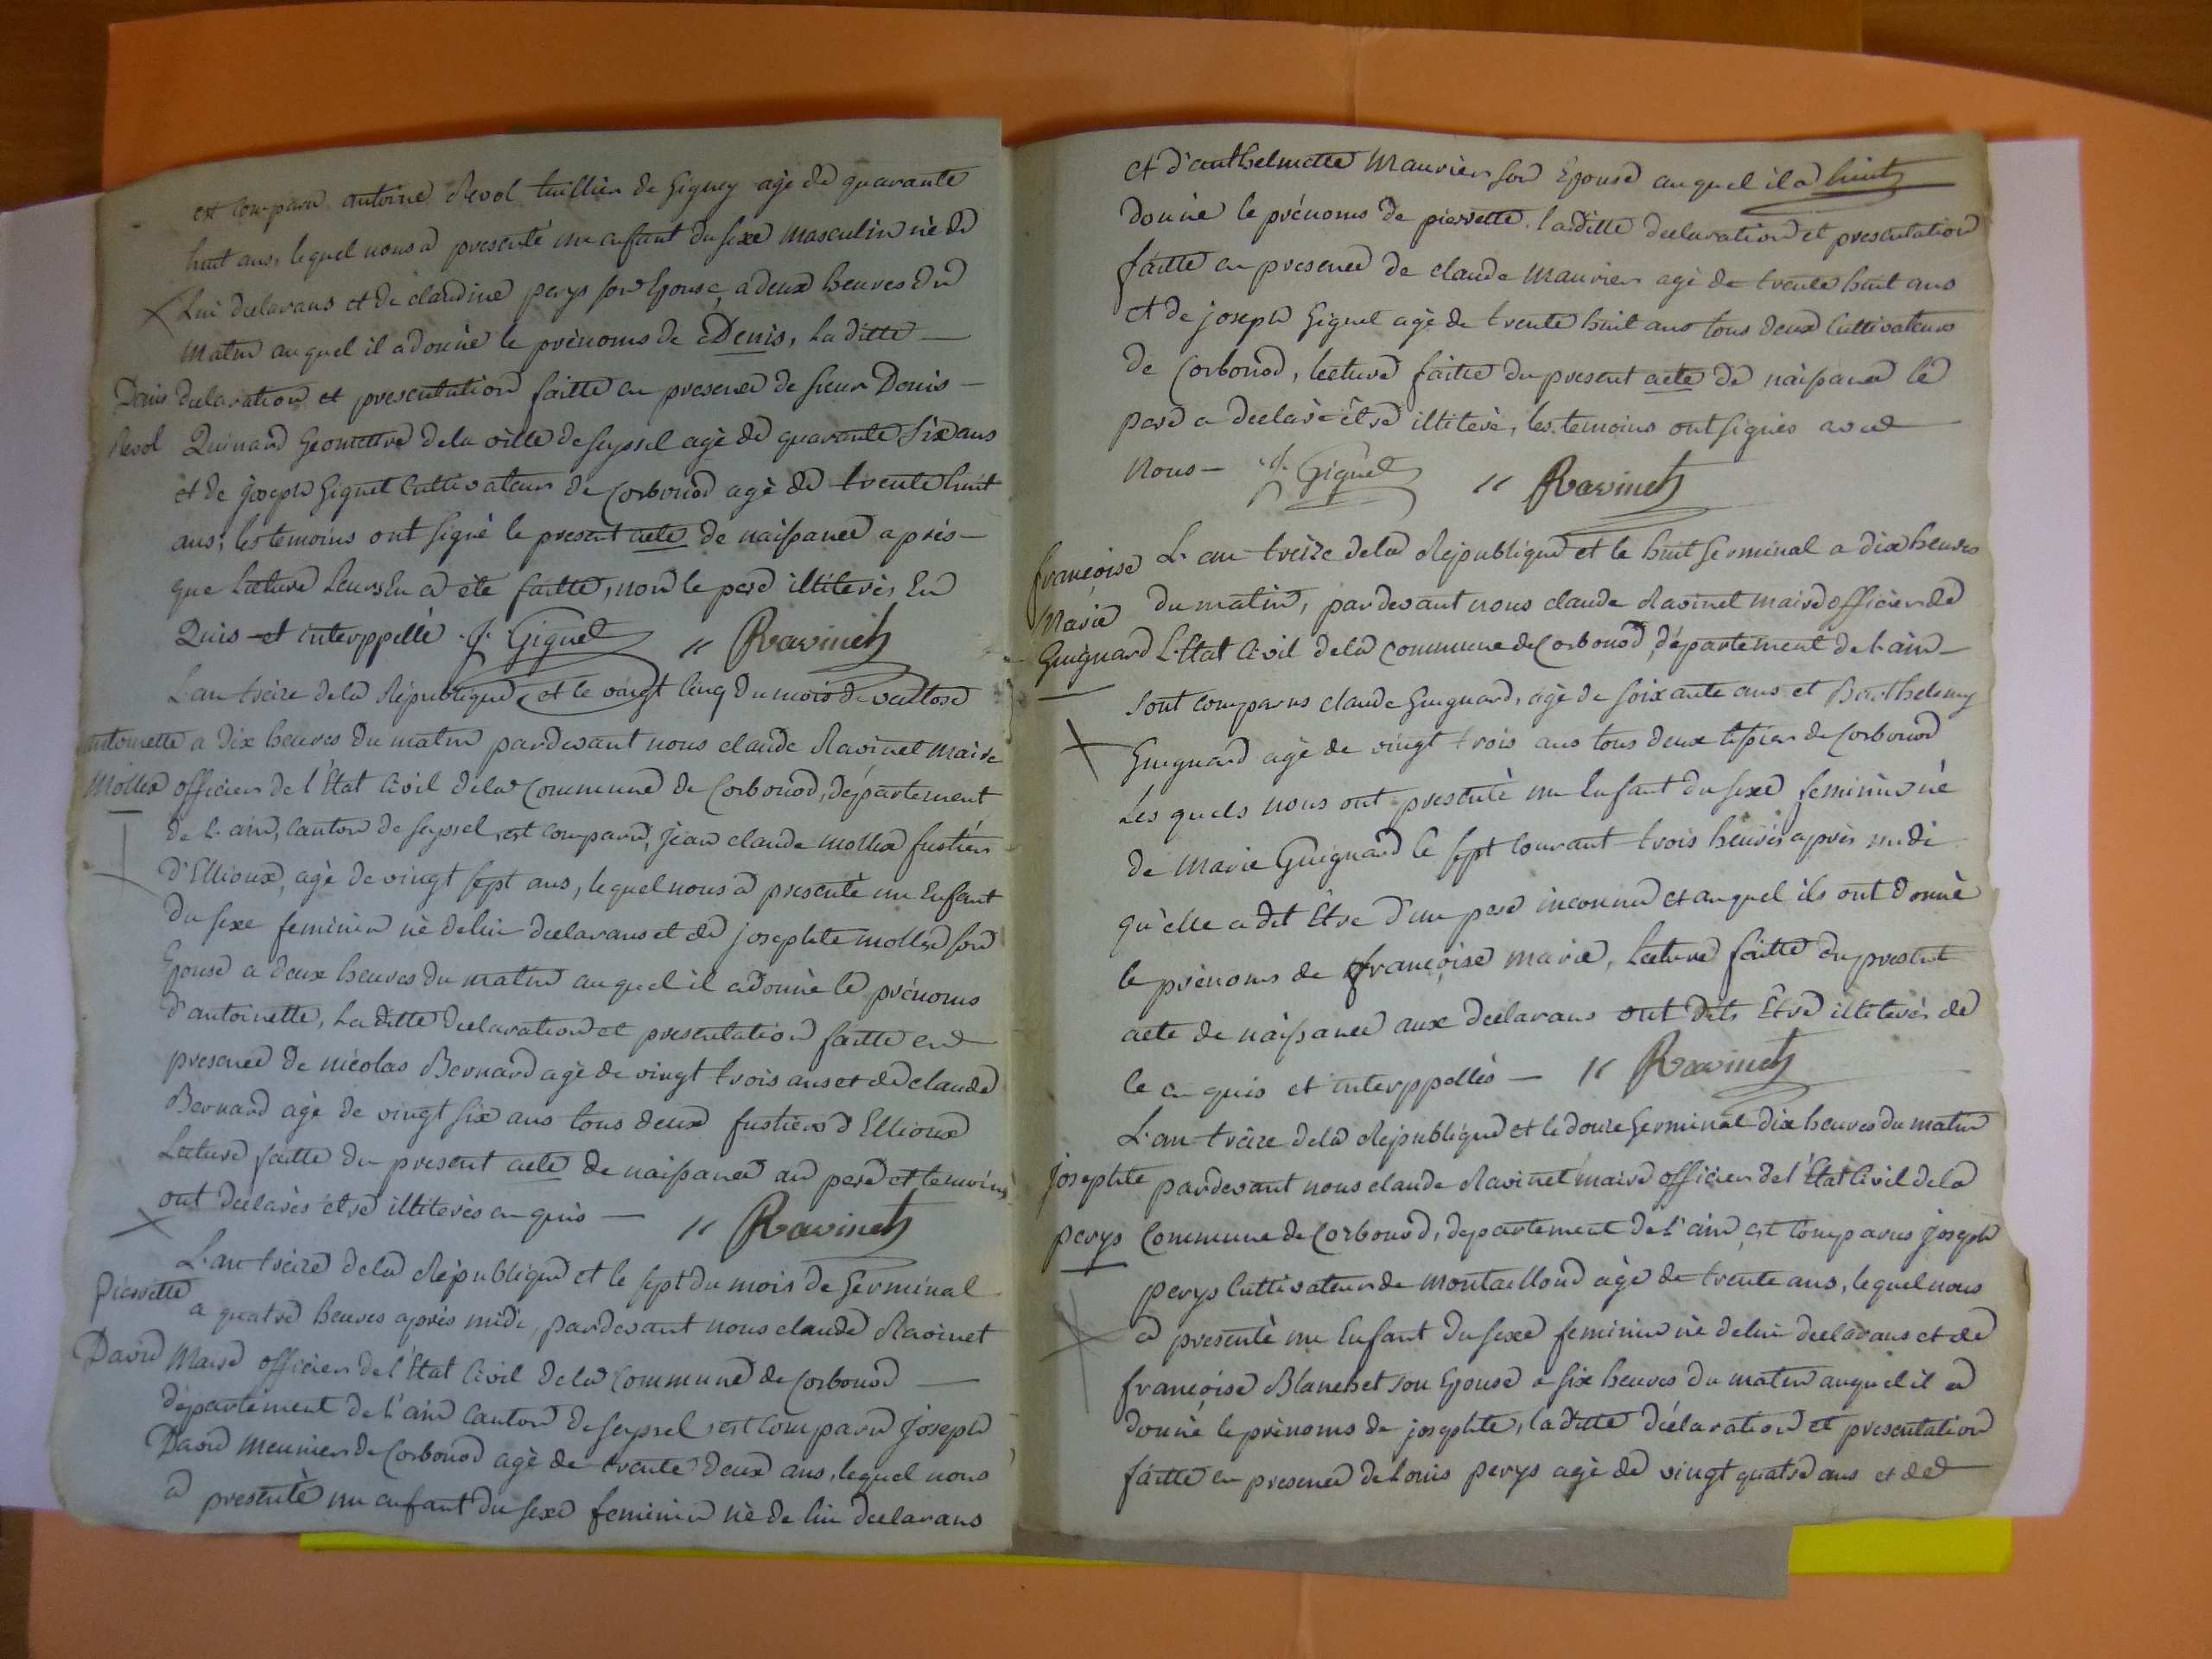 est comparu antoine Revol tuillier de Gignez agé de quarante
huit ans, lequel nous a presenté un enfant du sexe masculin né de
Lui declarans et de claudine perys son Epouse, a deux heures du
matin auquel il a donné le prénoms de Denis, la ditte —
Denis declaration et presentation faitte en presence de sieur Denis —
Revol Quinard Geomettre de la ville de seyssel agé de quarante six ans
et de joseph Giguet Cultivateur de Corbonod agé de trente huit
ans, les temoins ont signé le present acte de naissance après —
que Lecture Leurs En a été faitte, non le pere illiteré, En
Quis et interppellé J. Giguet " Ravinet
L'an treize de la République et le vingt Cinq du mois de ventose
antoinette a dix heures du matin pardevant nous claude Ravinet maire
Mollex officier de l'Etat Civil de la Commune de Corbonod, département
de L'ain, Canton de seyssel, est comparu, jean claude mollex fustier
D'Ellioux, agé de vingt sept ans, lequel nous a presenté un Enfant
du sexe feminin né de lui declarans et de josephte mollex son
Epouse a deux heures du matin auquel il a donné le prénoms
d'antoinette, La ditte declaration et presentation faitte en
presence de nicolas Bernard agé de vingt trois ans et de claude
Bernard agé de vingt six ans tous deux fustiers d'Ellioux
Lecture faitte du present acte de naissance au pere et temoins
ont declarés être illiterés en quis — " Ravinet
L'an treize de la République et le sept du mois de Germinal
pierrette a quatre heures après midi, pardevant nous claude Ravinet
David Maire officier de l'Etat Civil de la Commune de Corbonod —
département de L'ain Canton de seyssel est comparu joseph
David meunier de Corbonod agé de trente deux ans, lequel nous
a presenté un enfant du sexe feminin né de lui declarans
et d'anthelmette Mauvier son Epouse auquel il a huit
donné le prénoms de pierrette. la ditte declaration et presentation
faitte en presence de claude Mauvier agé de trente huit ans
et de joseph Giguet agé de trente huit ans tous deux Cultivateurs
de Corbonod, lecture faitte du present acte de naissance le
pere a declaré être illiteré, les temoins ont signés avec
nous — J. Giguet " Ravinet
françoise L'an treize de la République et le huit Germinal a dix heures
Marie du matin, pardevant nous claude Ravinet maire officier de
Guignard L'Etat Civil de la Commune de Corbonod, département de L'ain —
sont comparus claude Guignard, agé de soixante ans et Barthelemy
Guignard agé de vingt trois ans tous deux tissier de Corbonod
Les quels nous ont presenté un Enfant du sexe feminin né
de Marie Guignard le sept Courant trois heures après midi
qu'elle a dit Etre d'un pere inconnu et auquel ils ont donné
le prénoms de françoise marie, Lecture faitte du present
acte de naissance aux declarans ont dits Être illiterés de
ce en quis et interppellés — " Ravinet
L'an treize de la République et le douze Germinal dix heures du matin
josephte pardevant nous claude Ravinet maire officier de l'Etat Civil de la
perys Commune de Corbonod, departement de l'ain est Comparus joseph
perys Cultivateur de montailloud agé de trente ans, lequel nous
a presenté un Enfant du sexe feminin né de lui declarans et de
françoise Blanchet son Epouse a six heures du matin auquel il a
donné le prénoms de josephte, la ditte déclaration et presentation
faitte en presence de Louis perys agé de vingt quatre ans et de